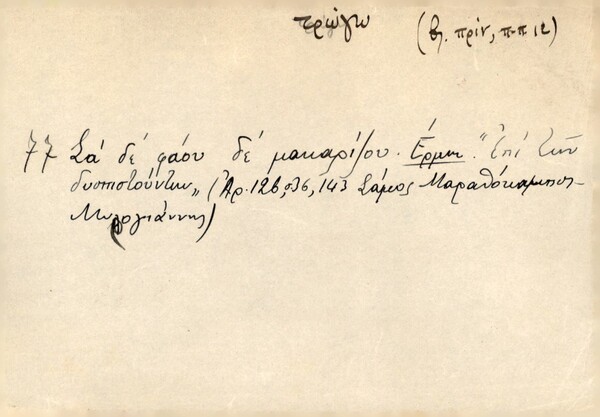 τρώγω (βλ. πρίν, π-π 12)
77 Σά δέ φάου δέ μακαρίζου. Ερμην. "Επί τών
δυσπιστούντων„ (Αρ. 126, σ36, 143 Σάμος Μαραθόκαμπος-
Μυλογιάννης)